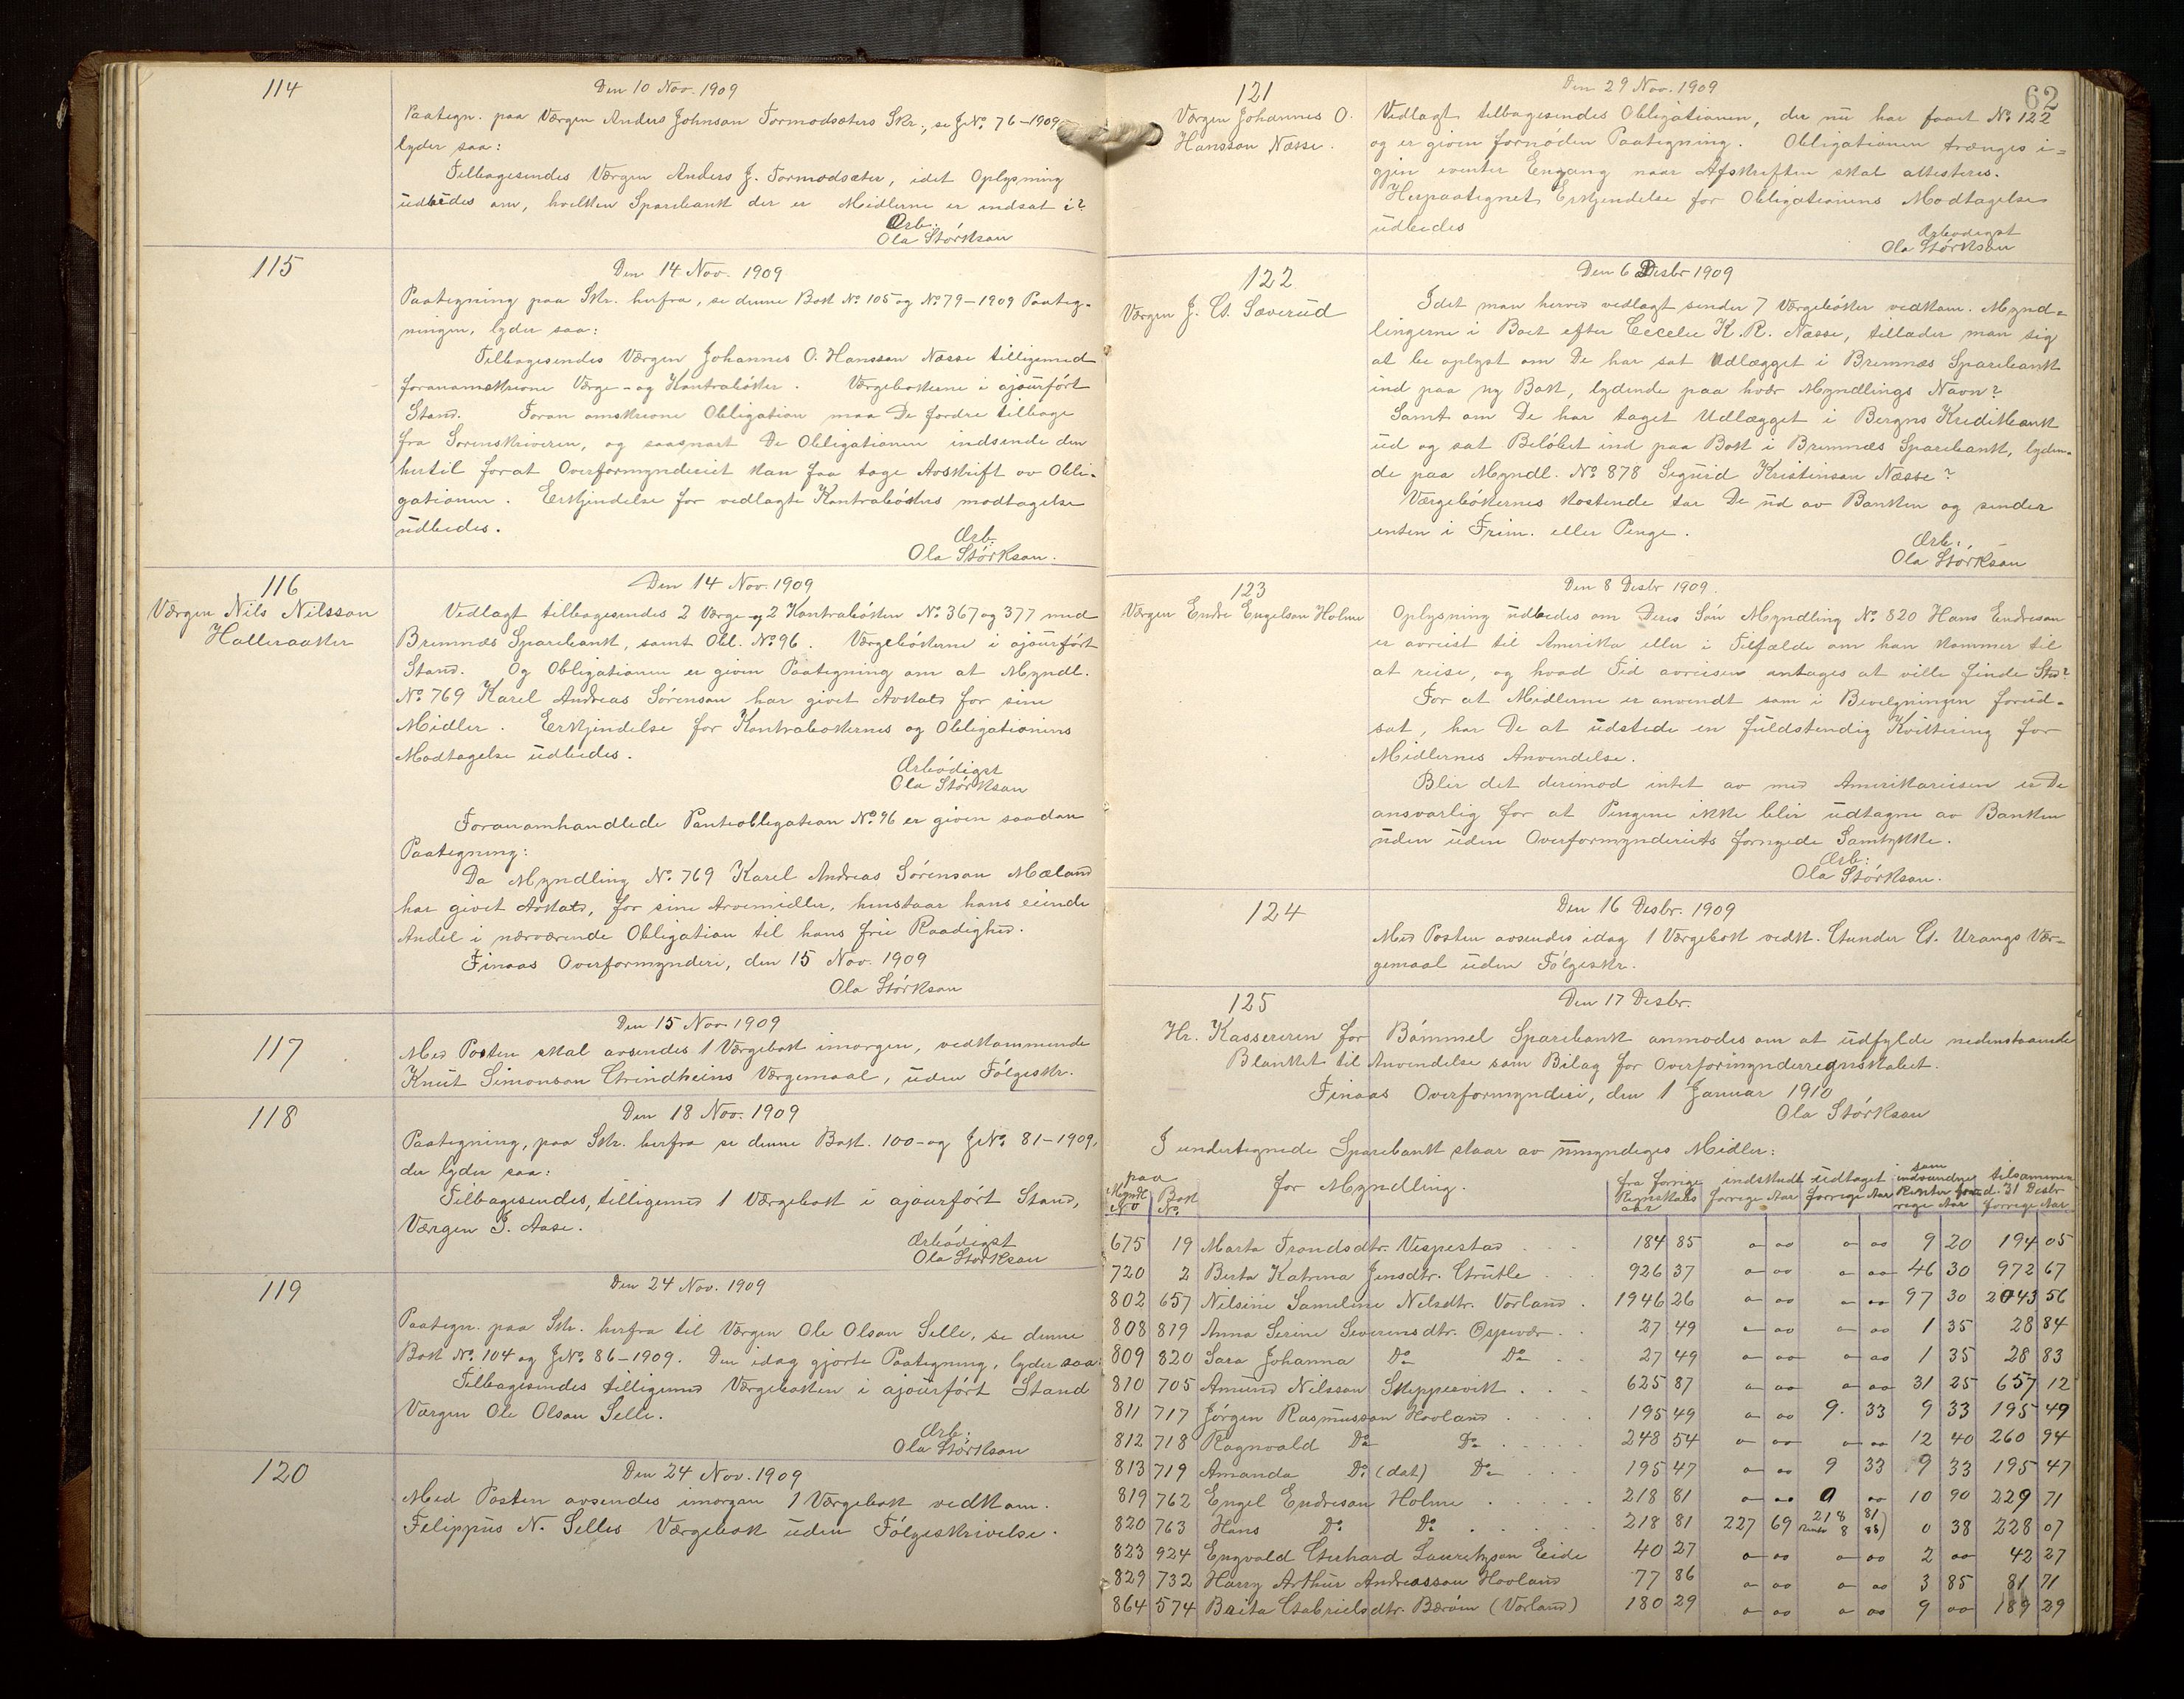 114
Den 10 Nov. 1909
Paategn. paa Værgen Anders Johnson Tormodsæters Skr., se JNo. 76-1909
lyder saa:
Tilbagesendes Værgen Anders J. Tormodsæter, idet Oplysning
udbedes om, hvilken Sparebank der er Midlerne er indsat i?
Ærb:
Ola Störkson
115
Den 14 Nov. 1909
Paategning paa Skr. herfra, se denne Bok No 105 og No 79-1909 Paateg-
ningen, lyder saa:
Tilbagesendes Værgen Johannes O. Hansson Næsse tilligemed
foranomskrevne Værge- og Kontraböker. Værgebökerne i ajourfört
Stand. Foran omskrevne Obligation maa De fordre tilbage
fra Sorenskriveren, og saasnart De Obligationen indsende den
hertil forat Overformynderiet kan faa tage Avskrift av Obli-
gationen. Erkjendelse for vedlagte Kontrabökers modtagelse
udbedes.
Ærb.
Ola Störkson.
116
Værgen Nils Nilsson
Halleraaker
Den 14 Nov. 1909
Vedlagt tilbagesendes 2 Værge og 2 Kontraböker No 367 og 377 med
Bremnæs Sparebank, samt Obl. No 96. Værgebökerne i ajourfört
Stand. Og Obligationen er given Paategning om at Myndl.
No 769 Karel Andreas Sörenson har givet Avkald for sine
Midler. Erkjendelse for Kontrabökernes og Obligationens
Modtagelse udbedes.
Ærbödigst
Ola Störkson
Foranomhandlede Panteobligation No 96 er given saadan
Paategning:
Da Myndling No 769 Karel Andreas Sörenson Mæland
har givet Avkald, for sine Arvemidler, henstaar hans eiende
Andel i nærværende Obligation til hans frie Raadighed.
Finaas Overformynderi, den 15 Nov. 1909
Ola Störkson
117
Den 15 Nov 1909
Med Posten skal avsendes 1 Værgebok imorgen, vedkommende
Knut Simonson Grindheims Værgemaal, uden Fölgeskr.
118
Den 18 Nov. 1909
Paategning, paa Skr. herfra se denne Bok. 100- og JNo. 81-1909,
der lyder saa:
Tilbagesendes, tilligemed 1 Værgebok i ajourfört Stand,
Værgen J. Aase.
Ærbödigst
Ola Störkson
119
Den 24 Nov. 1909
Paategn. paa Skr. herfra til Værgen Ole Olson Selle, se denne
Bok No. 104 og JNo. 86-1909. Den idag gjorte Paategning, lyder saa:
Tilbagesendes tilligemed Værgeboken i ajourfört Stand
Værgen Ole Olson Selle.
Ærb:
Ola Störkson
120
Den 24 Nov. 1909
Med Posten avsendes imorgan 1 Værgebok vedkom.
Filippus N. Selles Værgebok uden Fölgeskrivelse.
62
121
Værgen Johannes O.
Hansson Næsse.
Den 29 Nov. 1909
Vedlagt tilbagesendes Obligationen, der nu har faaet No 122
og er given fornöden Paategning. Obligationen trænges i=
gjen eventer Engang naar Afskriften skal attesteres.
Herpaategnet Erkjendelse for Obligationens Modtagelse
udbedes
Ærbödigst
Ola Störkson
122.
Værgen J. G. Sæverud
Den 6 Desbr 1909
Idet man herved vedlagt sender 7 Værgeböker vedkom. Mynd=
lingerne i Boet efter Cecelie K. R. Næsse, tillader man sig
at be oplyst om De har sat Udlægget i Bremnæs Sparebank
ind paa ny Bok, lydende paa hvær Myndlings Navn?
Samt om De har taget Udlægget i Bergens Kreditbank
ud og sat Belöbet ind paa Bok i Bremnæs Sparebank, lyden-
de paa Myndl. No 878 Sigurd Kristenson Næsse?
Værgebökernes kostende tar De ud av Banken og sender
enten i Frim. eller Penge.
Ærb.
Ola Störkson
123
Værgen Endre Engelson Holme
Den 8 Desbr 1909.
Oplysning udbedes om Deres Sön Myndling No 820 Hans Endreson
er avreist til Amerika eller i Tilfælde om han kommer til
at reise, og hvad Tid avreisen antages at ville finde Sted?
For at Midlerne er anvendt som i Bevilgningen forud-
sat, har De at udstede en fuldstendig Kvittering for
Midlernes Anvendelse.
Blir det derimod intet av med Amerikareisen er De
ansvarlig for at Pengene ikke blir udtagne av Banken
uden uden Overformynderiets fornyede Samtykke.
Ærb:
Ola Störkson.
124
Den 16 Desbr. 1909
Med Posten avsendes idag 1 Værgebok vedk. Gunder G. Urangs Vær-
gemaal uden Fölgeskr.
125
Den 17 Desbr.
Hr. Kassereren for Bömmel Sparebank anmodes om at udfylde nedenstaaende
Blanket til Anvendelse som Bilag for Overformynderregnskabet.
Finaas Overformynderi, den 1 Januar 1910
Ola Störkson
I undertegnede Sparebank staar av umyndiges Midler:
paa
Myndl No | Bok No. | for Myndling. | fra forrige Regnskabs aar | indskudt forrige Aar | udtaget forrige Aar | som indvundne Renter forrige Aar | tilsammen d. 31 Desbr forrige Aar
675 | 19 | Marta Trondsdtr. Vespestad | 184 85 | o oo | o oo | 9 20 | 194 05
720 | 2 | Berta Katrina Jensdtr. Grutle | 926 37 | o oo | o oo | 46 30 | 972 67
802 | 657 | Nilsine Sameline Nelsdtr. Vorland | 1946 26 | o oo | o oo | 97 30 | 2043 56
808 | 819 | Anna Serine Severinsdtr. Espevær | 27 49 | o oo | o oo | 1 35 | 28 84
809 | 820 | Sara Johanna Do Do | 27 49 | o oo | o oo | 1 35 | 28 83
810 | 705 | Amund Nilsson Skippervik | 625 87 | o oo | o oo | 31 25 | 657 12
811 | 717 | Jörgen Rasmusson Hovland | 195 49 | o oo | 9 33 | 9 33 | 195 49
812 | 718 | Ragnvald Do Do | 248 54 | o oo | o oo | 12 40 | 260 94
813 | 719 | Amanda Do (dat) Do | 195 47 | o oo | 9 33 | 9 33 | 195 47
819 | 762 | Engel Endreson Holme | 218 81 | o oo | 0 oo | 10 90 | 229 71
820 | 763 | Hans Do Do | 218 81 | 227 69 | 218 81 Rente 8 88) | 0 38 | 228 07
823 | 924 | Engvald Gerhard Lauritzson Eide | 40 27 | o oo | o oo | 2 oo | 42 27
829 | 732 | Harry Arthur Andreasson Hovland | 77 86 | o oo | o oo | 3 85 | 81 71
864 | 574 | Brita Gabrielsdtr. Bæröm (Vorland) | 180 29 | o oo | o oo | 9 oo | 189 29